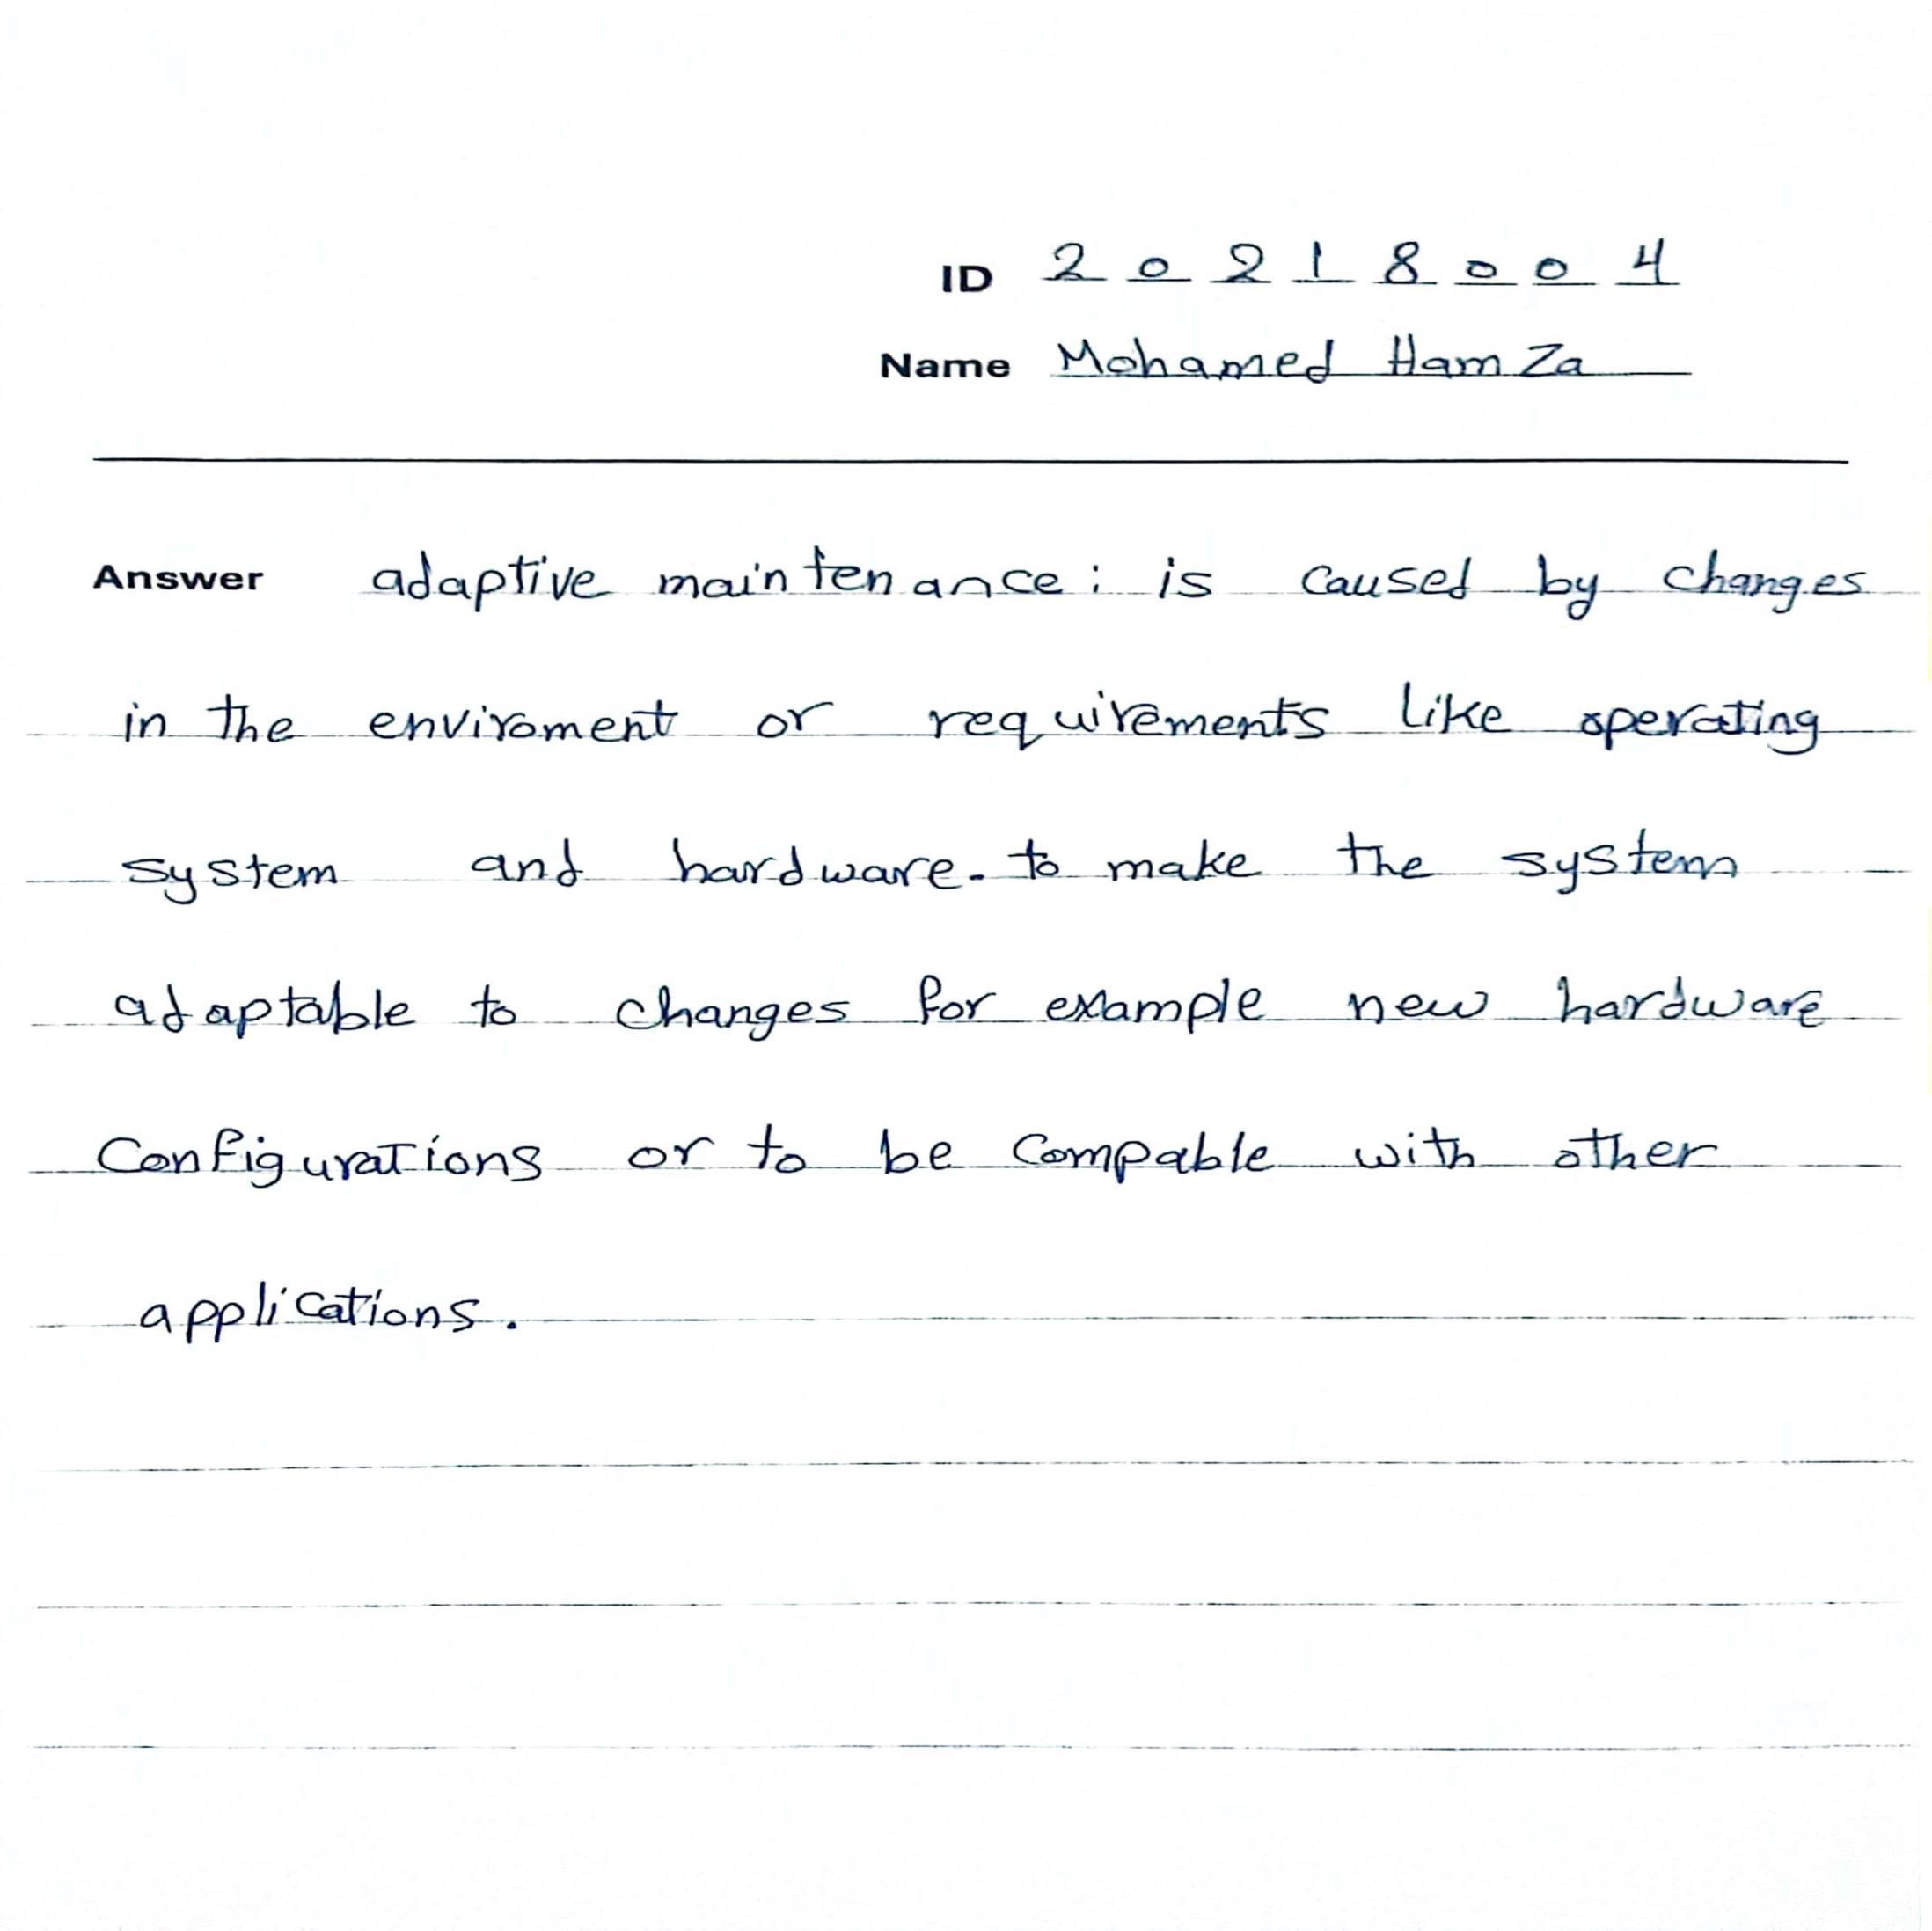 ID 20218004
Name Mohamed Hamza
Answer adaptive maintenance: is caused by changes
in the enviroment or requirements like operating
system and hardware. to make the system
adaptable to changes for example new hardware
Configurations or to be Compable with other
applications.